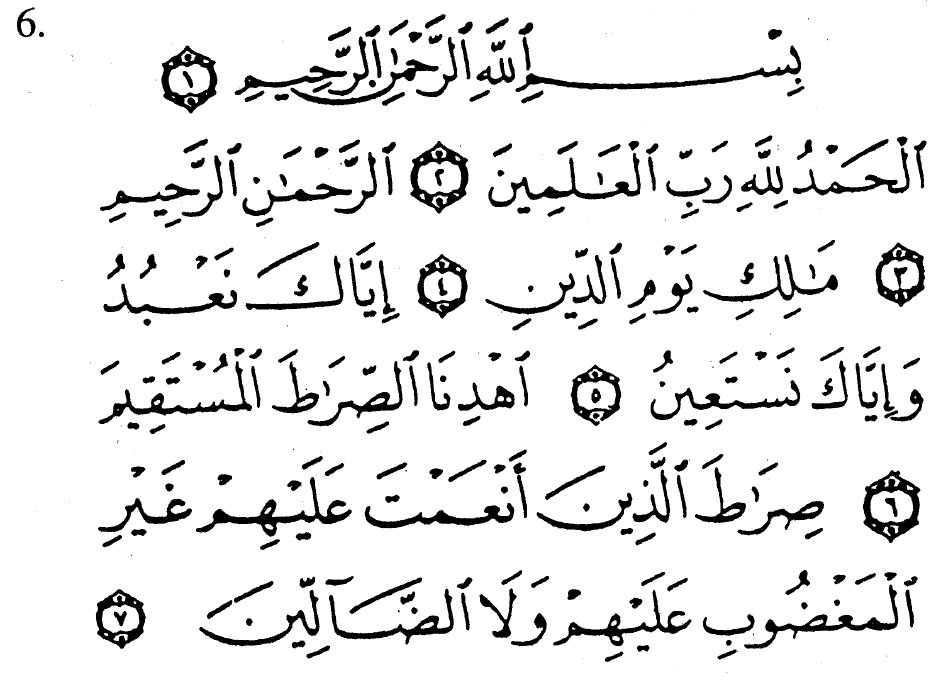 6.
بِسْمِ ٱللَّهِ ٱلرَّحْمَٰنِ ٱلرَّحِيمِ ١
ٱلْحَمْدُ لِلَّهِ رَبِّ ٱلْعَٰلَمِينَ ٢ ٱلرَّحْمَٰنِ ٱلرَّحِيمِ
٣ مَٰلِكِ يَوْمِ ٱلدِّينِ ٤ إِيَّاكَ نَعْبُدُ
وَإِيَّاكَ نَسْتَعِينُ ٥ ٱهْدِنَا ٱلصِّرَٰطَ ٱلْمُسْتَقِيمَ
٦ صِرَٰطَ ٱلَّذِينَ أَنْعَمْتَ عَلَيْهِمْ غَيْرِ
ٱلْمَغْضُوبِ عَلَيْهِمْ وَلَا ٱلضَّآلِّينَ ٧